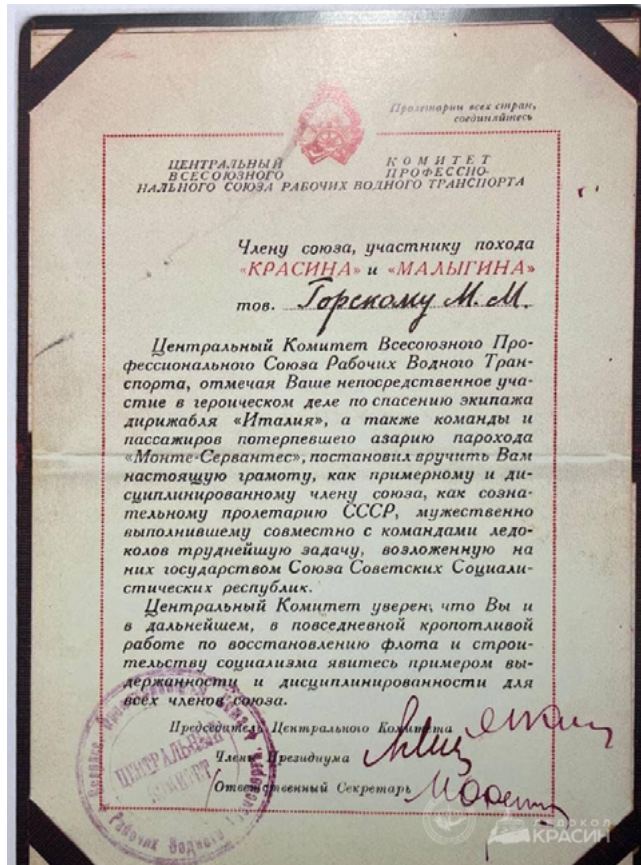 Пролетарии всех стран,
соединяйтесь
ЦЕНТРАЛЬНЫЙ КОМИТЕТ
ВСЕСОЮЗНОГО ПРОФЕССИО-
НАЛЬНОГО СОЮЗА РАБОЧИХ ВОДНОГО ТРАНСПОРТА
Члену союза, участнику похода
«КРАСИНА» и «МАЛЫГИНА»
тов. Горскому М. М.
Центральный Комитет Всесоюзного Про-
фессионального Союза Рабочих Водного Тран-
спорта, отмечая Ваше непосредственное уча-
стие в героическом деле по спасению экипажа
дирижабля «Италия», а также команды и
пассажиров потерпевшего азарию парохода
«Монте-Сервантес», постановил вручить Вам
настоящую грамоту, как примерному и ди-
сциплинированному члену союза, как созна-
тельному пролетарию СССР, мужественно
выполнившему совместно с командами ледо-
колов труднейшую задачу, возложенную на
них государством Союза Советских Социали-
стических республик.
Центральный Комитет уверен, что Вы и
в дальнейшем, в повседневной кропотливой
работе по восстановлению флота и строи-
тельству социализма явитесь примером вы-
держанности и дисциплинированности для
всех членов союза.
Председатель Центрального Комитета
Члены Президиума
Ответственный Секретарь
ЦЕНТРАЛЬНЫЙ
КОМИТЕТ
Рабочих Водного Транспорта
ЛЕДОКОЛ
КРАСИН